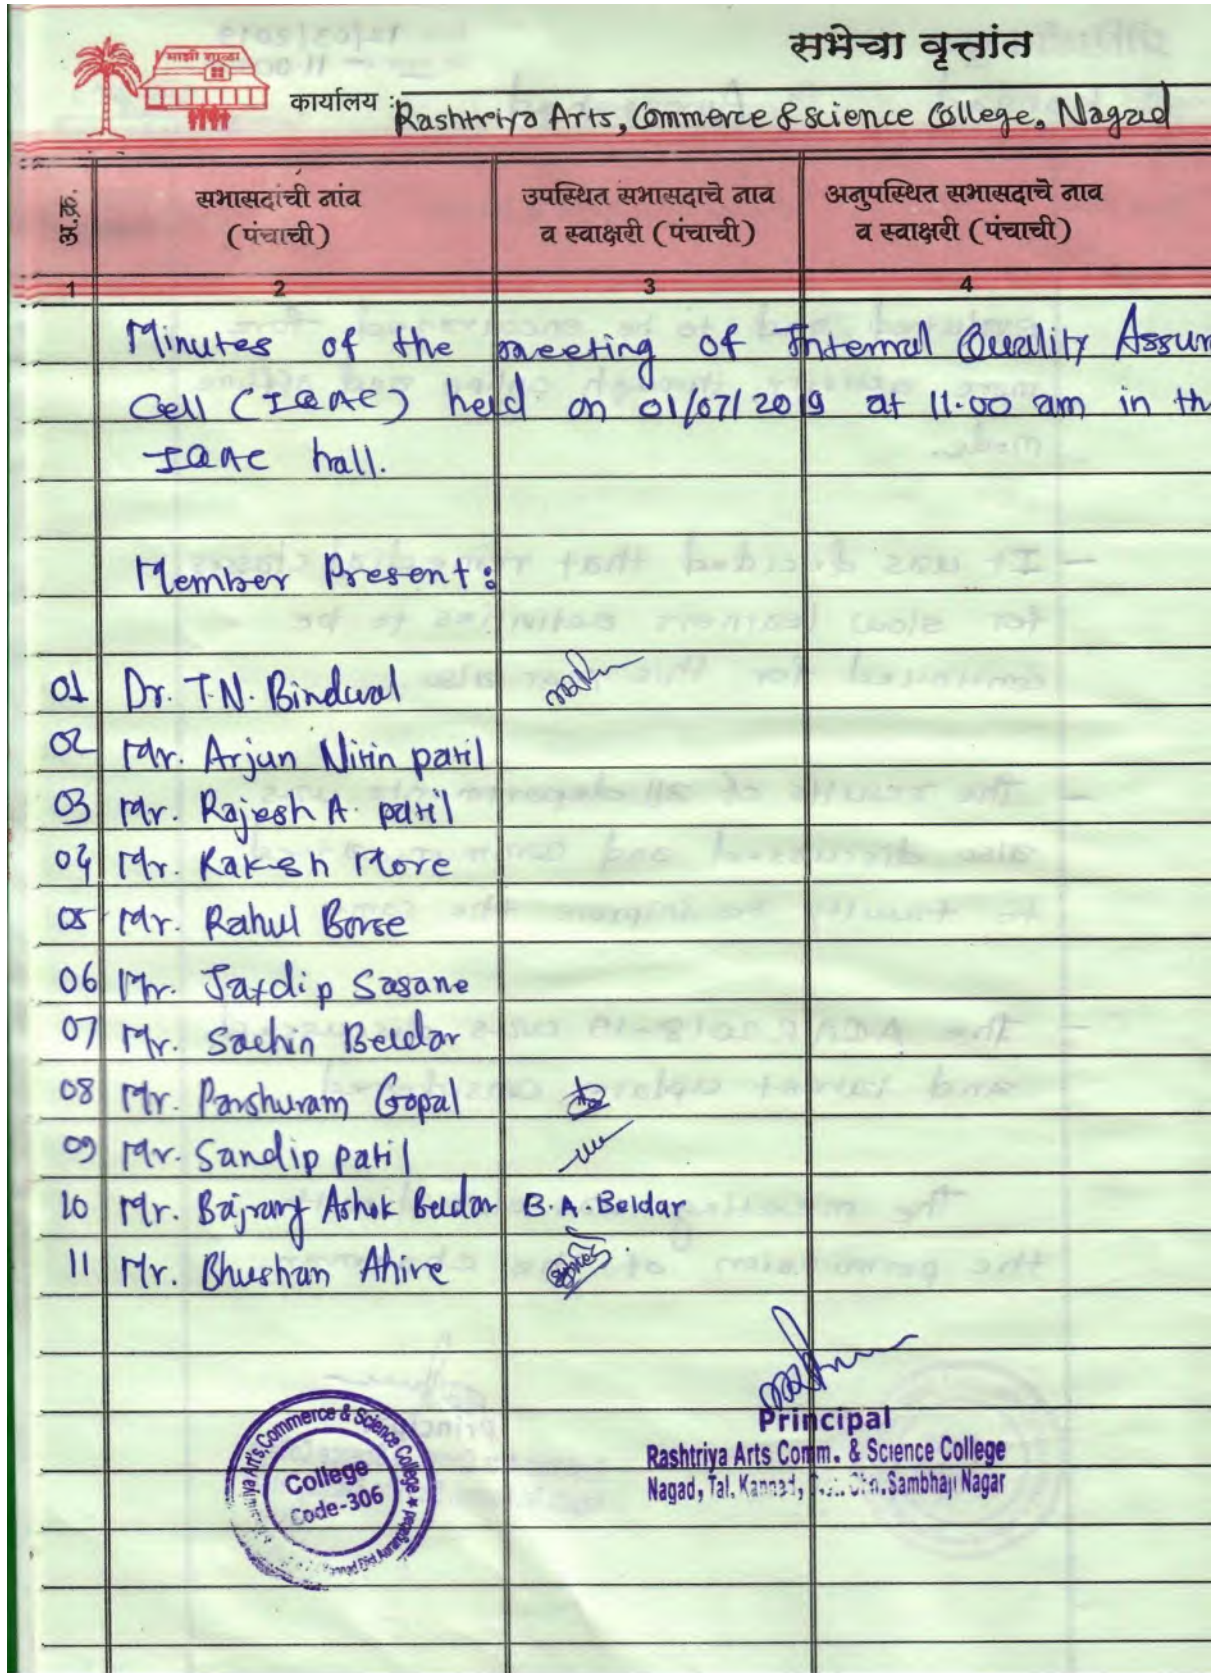 सभेचा वृत्तांत
माझी शाळा
कार्यालय : Rashtriya Arts, Commerce & science College, Nagad
अ.क्र.
सभासदांची नांव (पंचाची)
उपस्थित सभासदाचे नाव व स्वाक्षरी (पंचाची)
अनुपस्थित सभासदाचे नाव व स्वाक्षरी (पंचाची)
1 2 3 4
Minutes of the meeting of Internal Quality Assur
Cell (IQAC) held on 01/07/2019 at 11.00 am in th
IQAC hall.
Member Present:
01 Dr. T.N. Bindwal
02 Mr. Arjun Nitin patil
03 Mr. Rajesh A. patil
04 Mr. Rakesh More
05 Mr. Rahul Borse
06 Mr. Jaydip Sasane
07 Mr. Sachin Beldar
08 Mr. Parshuram Gopal
09 Mr. Sandip patil
10 Mr. Bajrang Ashok Beldar B.A.Beldar
11 Mr. Bhushan Ahire
Principal
Rashtriya Arts Comm. & Science College
Nagad, Tal. Kannad, Dist. Chh. Sambhaji Nagar
Art's, Commerce & Science College
College
Code-306